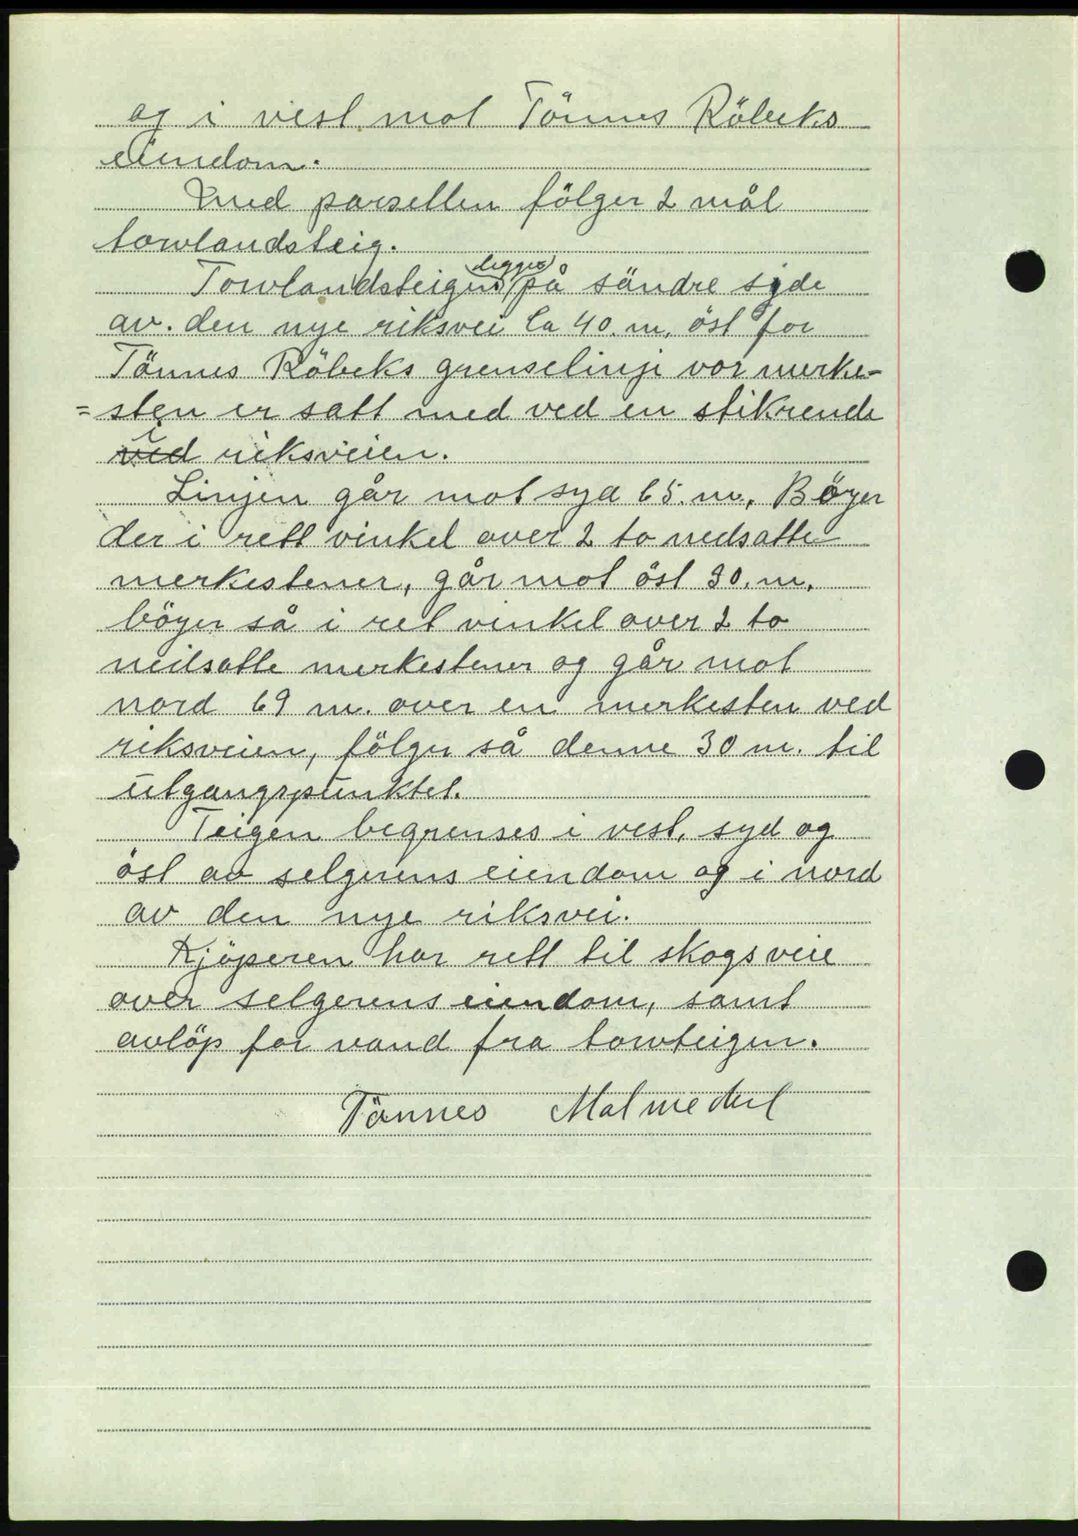 og i vest mot Tönnes Röbeks
eiendom.
Med parsellen fölger 2 mål
torvlandsteig.
Torvlandsteigen (ligger) på söndre syde
av den nye riksvei ca 40 m, öst for
Tönnes Röbeks grenselinje vor merke-
=sten er satt med ved en stikrende
ved i riksveien.
Linjen går mot syd 65 m, Böyer
der i rett vinkel over 2 to nedsatte
merkestener, går mot öst 30 m,
böyer så i ret vinkel over 2 to
neilsatte merkestener og går mot
nord 69 m. over en merkesten ved
riksveien, fölger så denne 30 m. til
utgangspunktet.
Teigen begrenses i vest, syd og
öst av selgerens eiendom og i nord
av den nye riksvei.
Kjöperen har rett til skogsveie
over selgerens eiendom, samt
avlöp for vand fra torvteigen.
Tönnes Malmedal